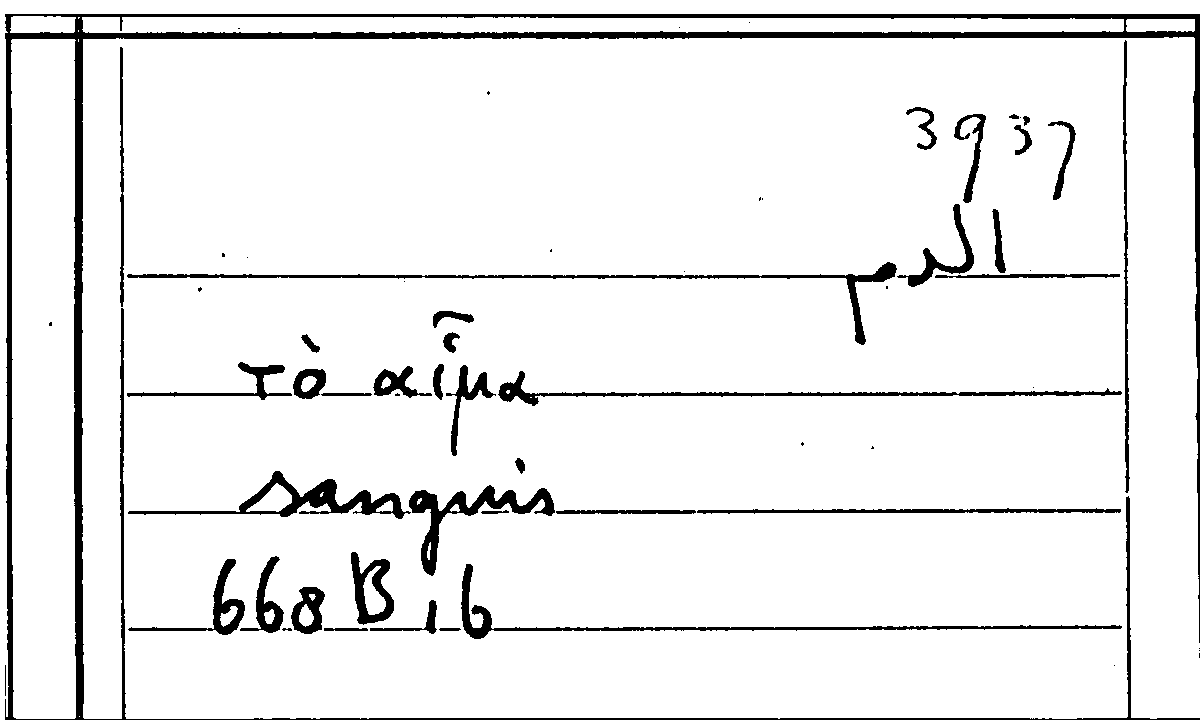 3937
الدم
τὸ αἷμα
sanguis
668 B 16